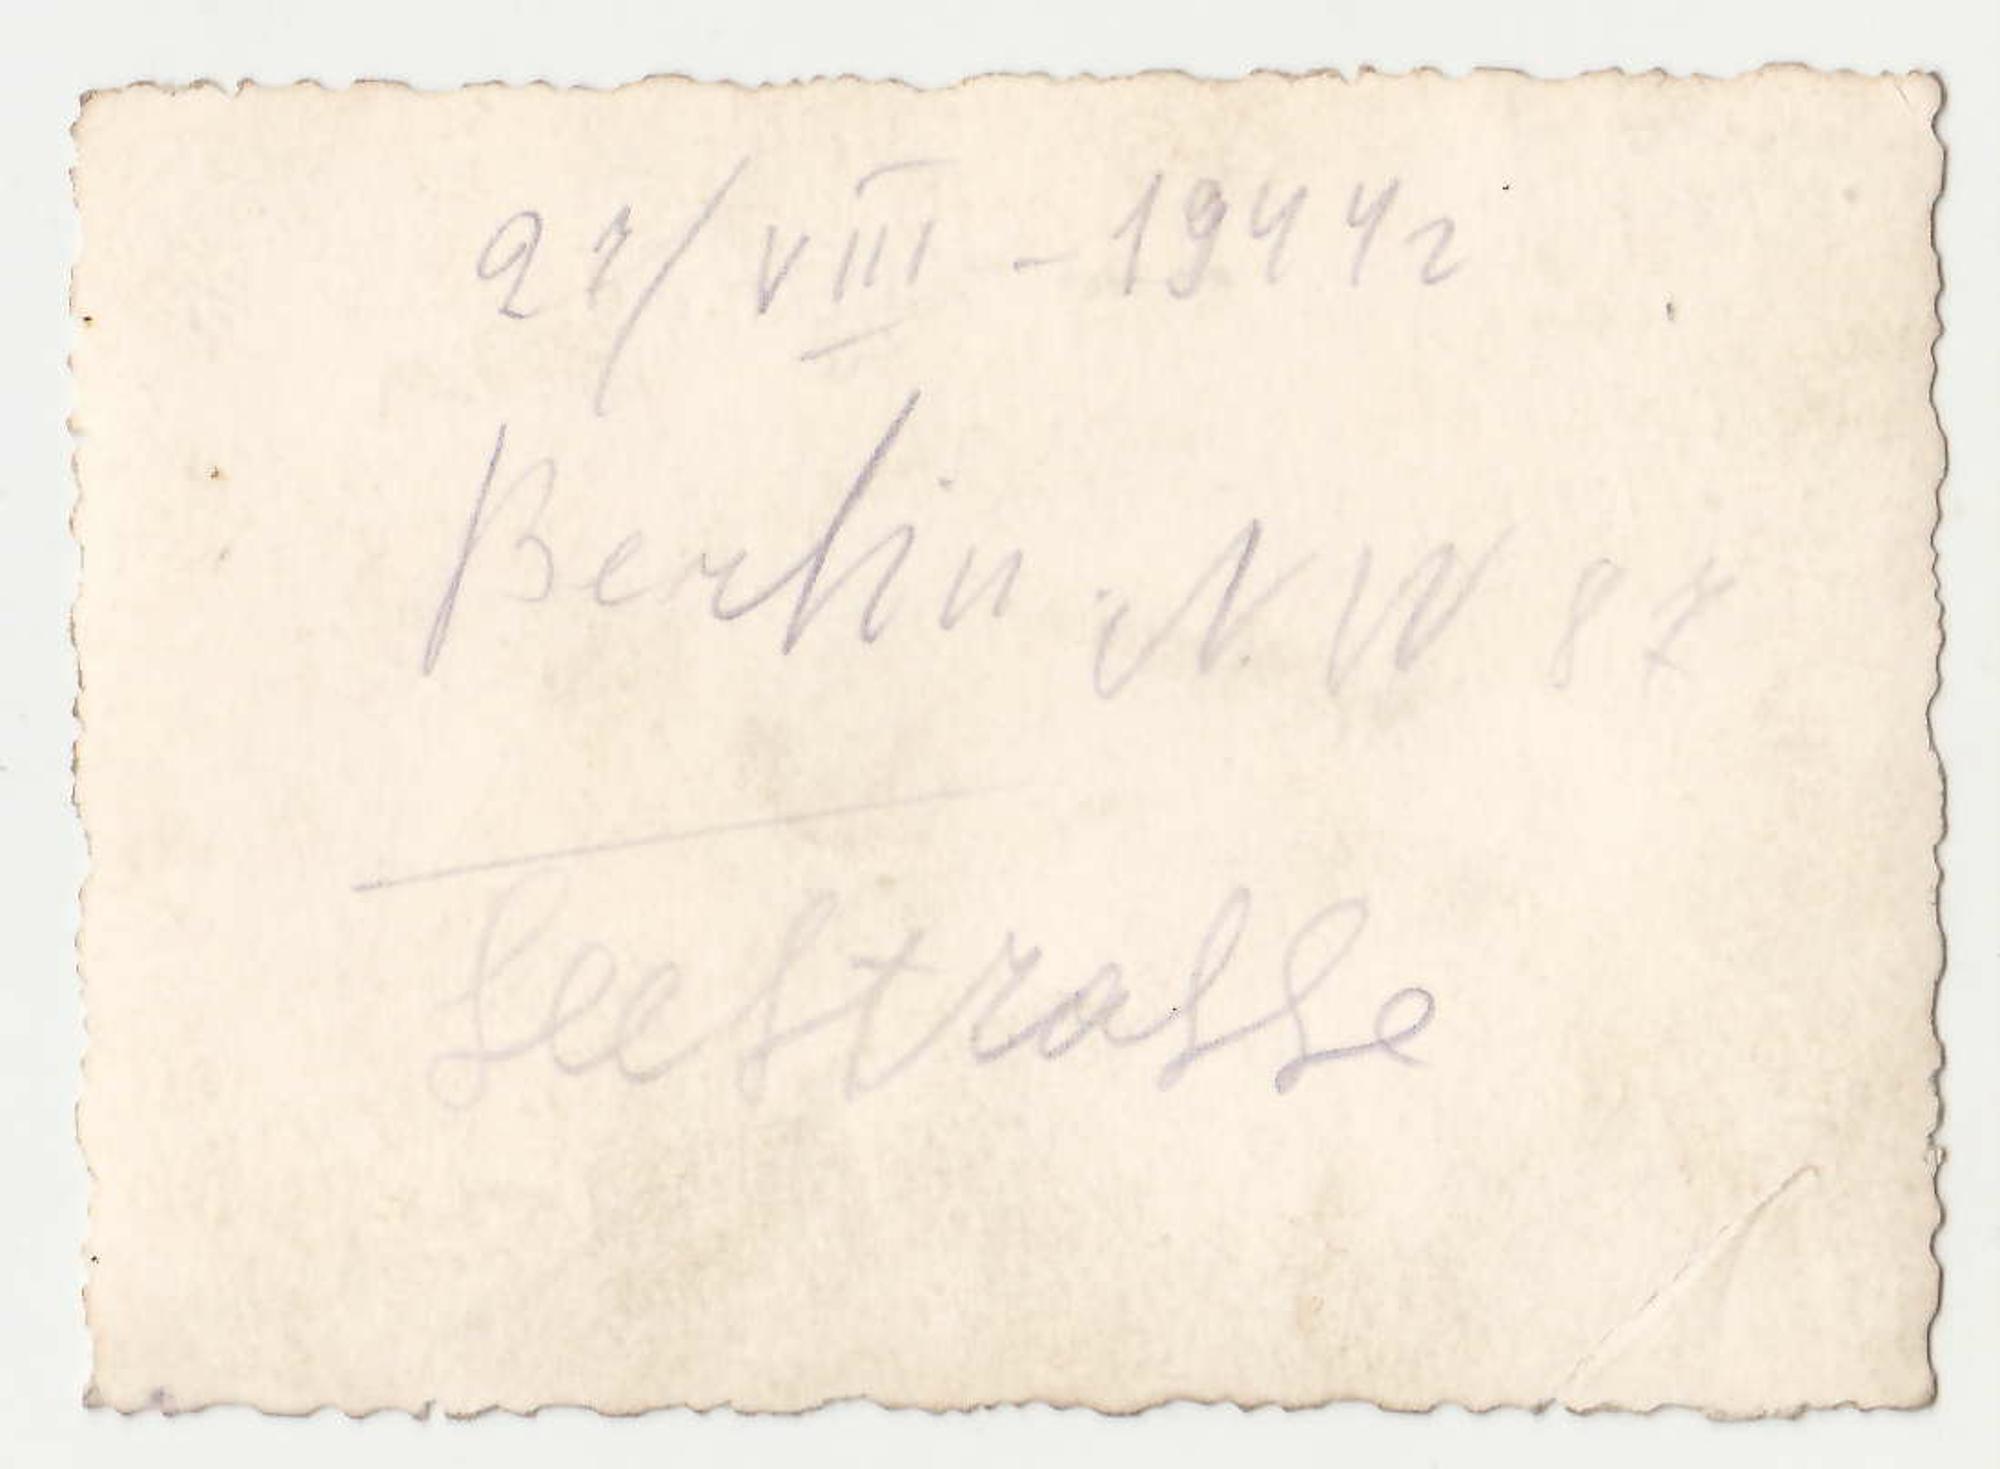 27/VIII - 1944г
Berlin. NW 87
Seestrasse